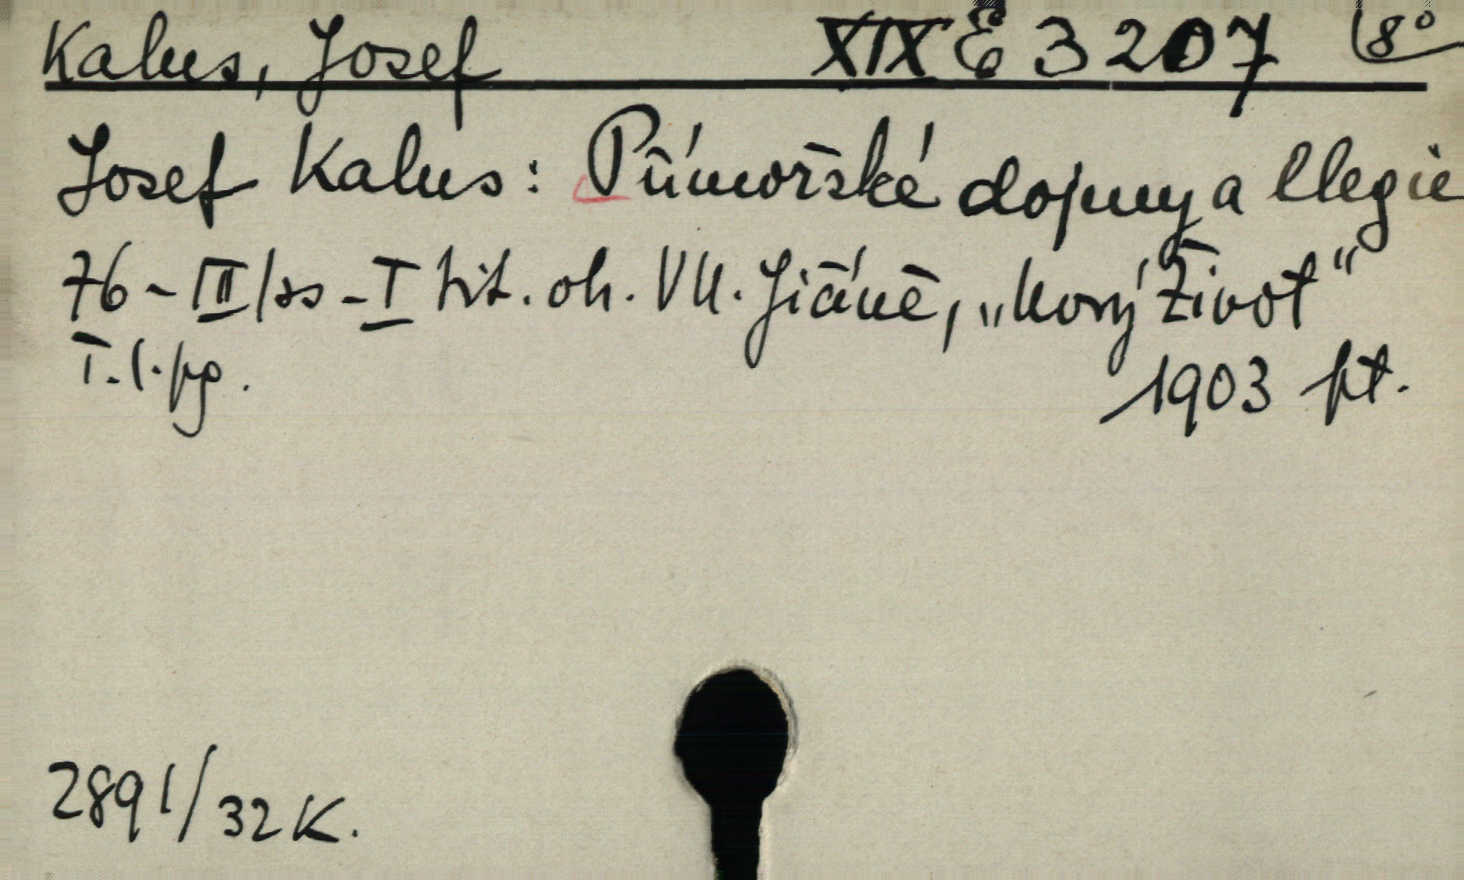 Kalus, Josef XIX E 3207 8°
Josef Kalus: Přímořské dojmy a Elegie
76-III/ss-I tit. ob. Vil. Jičíně, „Nový Život"
T.l.pg.
1903 pt.
2891/32K.